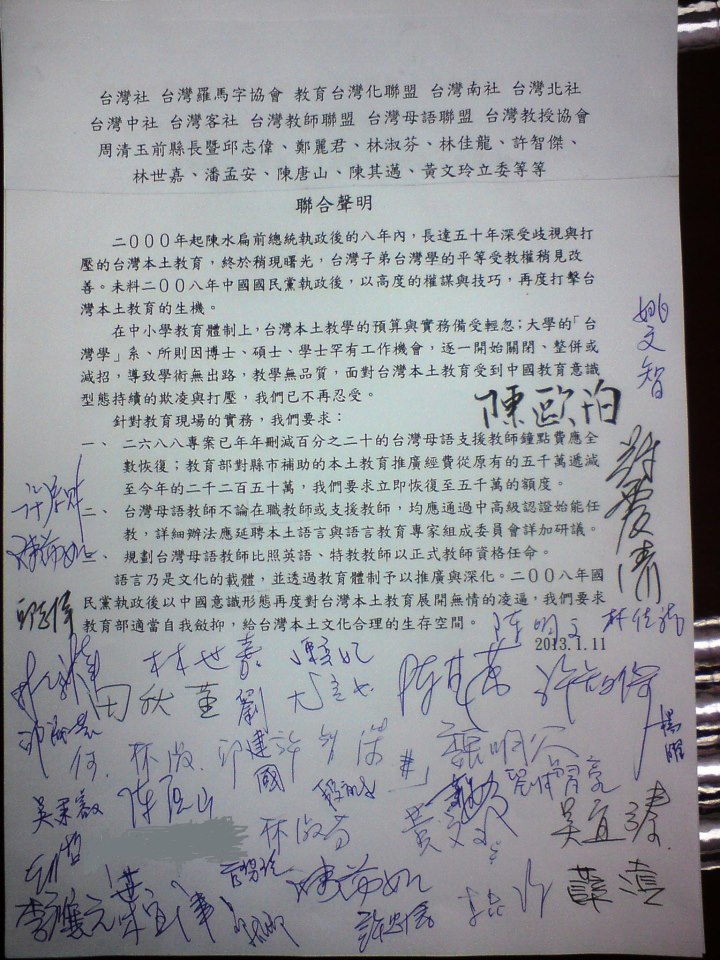 台灣社 台灣羅馬字協會 教育台灣化聯盟 台灣南社 台灣北社
台灣中社 台灣客社 台灣教師聯盟 台灣母語聯盟 台灣教授協會
周清玉前縣長暨邱志偉、鄭麗君、林淑芬、林佳龍、許智傑、
林世嘉、潘孟安、陳唐山、陳其邁、黃文玲立委等等
聯合聲明
二000年起陳水扁前總統執政後的八年內，長達五十年深受歧視與打
壓的台灣本土教育，終於稍現曙光，台灣子弟台灣學的平等受教權稍見改
善。未料二00八年中國國民黨執政後，以高度的權謀與技巧，再度打擊台
灣本土教育的生機。
在中小學教育體制上，台灣本土教學的預算與實務備受輕忽；大學的「台
灣學」系、所則因博士、碩士、學士罕有工作機會，逐一開始關閉、整併或
減招，導致學術無出路，教學無品質，面對台灣本土教育受到中國教育意識
型態持續的欺凌與打壓，我們已不再忍受。
針對教育現場的實務，我們要求：
一、 二六八八專案已年年刪減百分之二十的台灣母語支援教師鐘點費應全
數恢復；教育部對縣市補助的本土教育推廣經費從原有的五千萬遞減
至今年的二千二百五十萬，我們要求立即恢復至五千萬的額度。
二、 台灣母語教師不論在職教師或支援教師，均應通過中高級認證始能任
教，詳細辦法應延聘本土語言與語言教育專家組成委員會詳加研議。
三、 規劃台灣母語教師比照英語、特教教師以正式教師資格任命。
語言乃是文化的載體，並透過教育體制予以推廣與深化。二00八年國
民黨執政後以中國意識形態再度對台灣本土教育展開無情的凌遲，我們要求
教育部適當自我斂抑，給台灣本土文化合理的生存空間。
2013.1.11
姚文智
陳歐珀
蔡煚清
陳明文
林佳龍
林世嘉
田秋堇
劉建國
陳其邁
許智傑
楊曜
魏明谷
劉櫂豪
吳秉叡
陳唐山
林淑芬
黃文玲
吳宜臻
李應元
葉宜津
陳節如
許忠信
薛凌